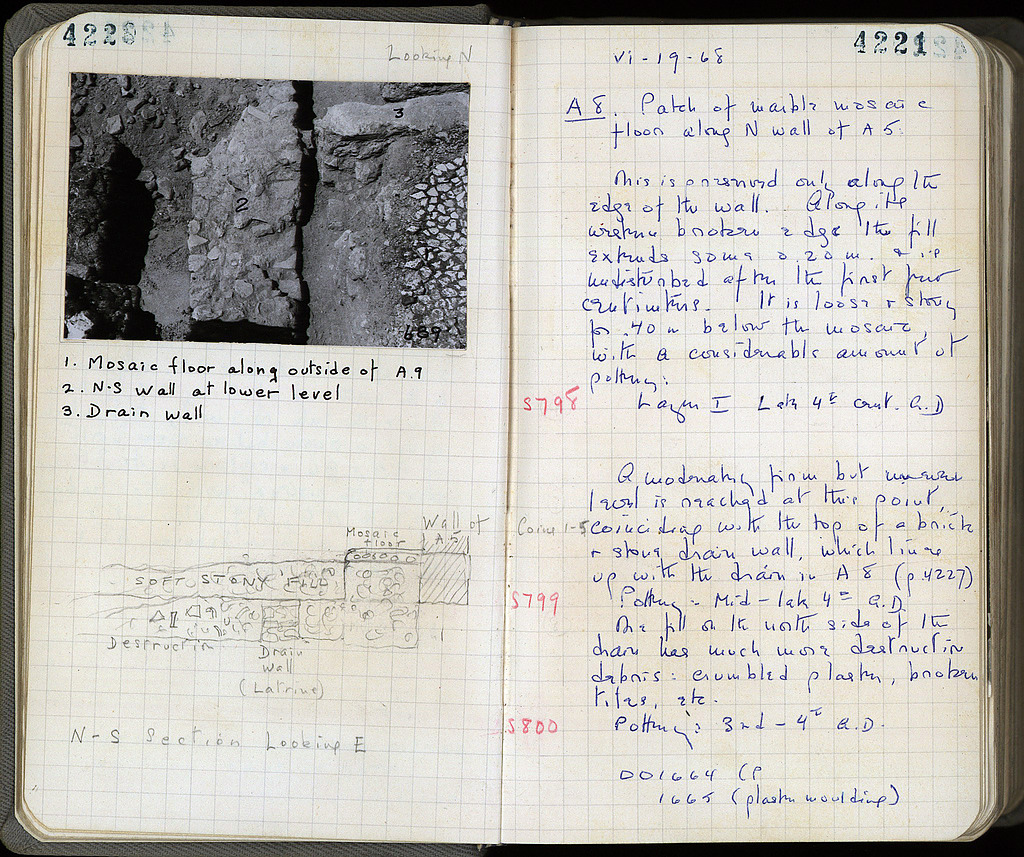 4223
Looking N
3
2
689
1. Mosaic floor along outside of A.9
2. N-S wall at lower level
3. Drain wall
Wall of
A.5
Mosaic
floor
SOFT STONY FILL
Destruction
Drain
Wall
(Latrine)
N-S Section Looking E
4221
vi-19-68
A 8. Patch of marble mosaic
floor along N wall of A5.
This is preserved only along the
edge of the wall. Along its
western broken edge the fill
extends some 0.20 m. & is
undisturbed after the first few
centimeters. It is loose & stony
for .40 m below the mosaic,
with a considerable amount of
pottery:
S798 Layer I Late 4th cent. A.D
A moderately firm but uneven
level is reached at this point,
Coins 1-5 coinciding with the top of a brick
& stone drain wall, which lines
up with the drain in A 8 (p.4227)
S799 Pottery: Mid-late 4th A.D.
The fill on the north side of the
drain has much more destruction
debris: crumbled plaster, broken
tiles, etc.
S800 Pottery: 3rd-4th A.D.
001664 (P
1665 (plaster moulding)